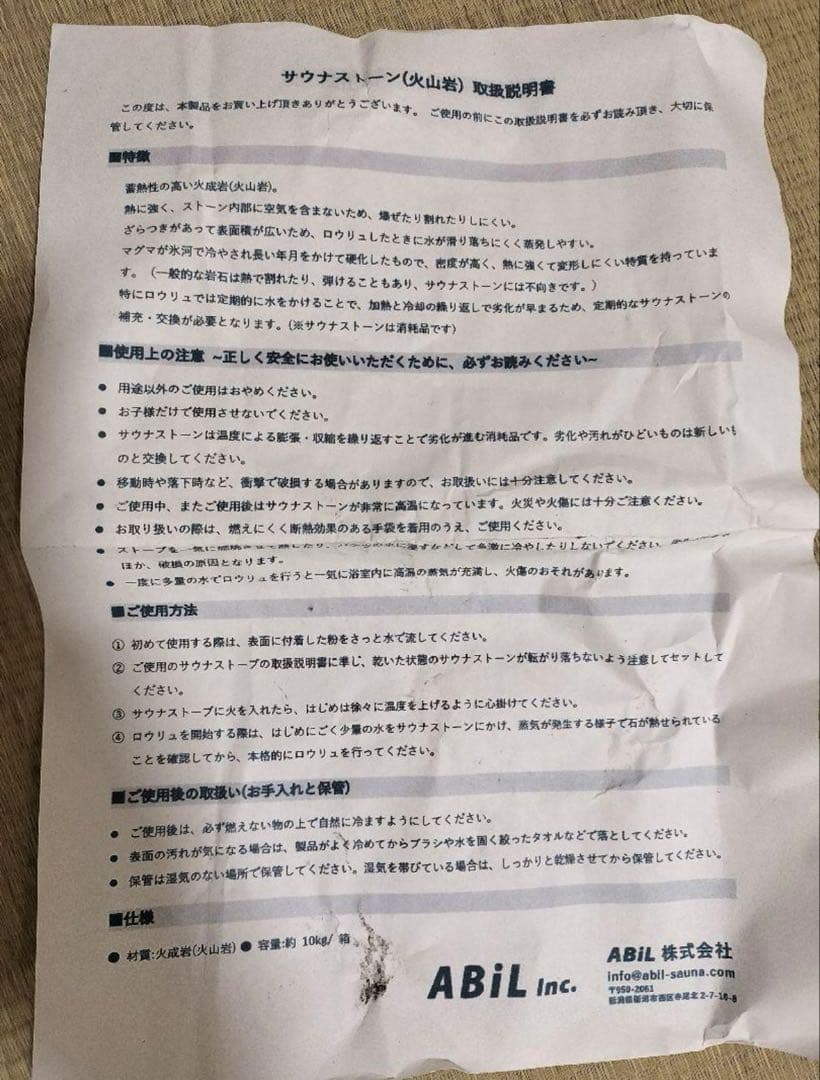 サウナストーン(火山岩) 取扱説明書
この度は、本製品をお買い上げ頂きありがとうございます。 ご使用の前にこの取扱説明書を必ずお読み頂き、大切に保
管してください。
■特徴
蓄熱性の高い火成岩(火山岩)。
熱に強く、ストーン内部に空気を含まないため、爆ぜたり割れたりしにくい。
ざらつきがあって表面積が広いため、ロウリュしたときに水が滑り落ちにくく蒸発しやすい。
マグマが氷河で冷やされ長い年月をかけて硬化したもので、密度が高く、熱に強くて変形しにくい特質を持っていま
す。（一般的な岩石は熱で割れたり、弾けることもあり、サウナストーンには不向きです。）
特にロウリュでは定期的に水をかけることで、加熱と冷却の繰り返しで劣化が早まるため、定期的なサウナストーンの
補充・交換が必要となります。(※サウナストーンは消耗品です)
■使用上の注意 ~正しく安全にお使いいただくために、必ずお読みください~
● 用途以外のご使用はおやめください。
● お子様だけで使用させないでください。
● サウナストーンは温度による膨張・収縮を繰り返すことで劣化が進む消耗品です。劣化や汚れがひどいものは新しいも
のと交換してください。
● 移動時や落下時など、衝撃で破損する場合がありますので、お取扱いには十分注意してください。
● ご使用中、またご使用後はサウナストーンが非常に高温になっています。火災や火傷には十分ご注意ください。
● お取り扱いの際は、燃えにくく断熱効果のある手袋を着用のうえ、ご使用ください。
● ストーブを一気に
ほか、破損の原因となります。
● 一度に多量の水でロウリュを行うと一気に浴室内に高温の蒸気が充満し、火傷のおそれがあります。
■ご使用方法
① 初めて使用する際は、表面に付着した粉をさっと水で流してください。
② ご使用のサウナストーブの取扱説明書に準じ、乾いた状態のサウナストーンが転がり落ちないよう注意してセットして
ください。
③ サウナストーブに火を入れたら、はじめは徐々に温度を上げるように心掛けてください。
④ ロウリュを開始する際は、はじめにごく少量の水をサウナストーンにかけ、蒸気が発生する様子で石が熱せられている
ことを確認してから、本格的にロウリュを行ってください。
■ご使用後の取扱い(お手入れと保管)
● ご使用後は、必ず燃えない物の上で自然に冷ますようにしてください。
● 表面の汚れが気になる場合は、製品がよく冷めてからブラシや水を固く絞ったタオルなどで落としてください。
● 保管は湿気のない場所で保管してください。湿気を帯びている場合は、しっかりと乾燥させてから保管してください。
■仕様
● 材質:火成岩(火山岩) ● 容量:約 10kg/ 箱
ABiL Inc.
ABiL 株式会社
info@abil-sauna.com
〒950-2061
新潟県新潟市西区寺尾北2-7-10-8